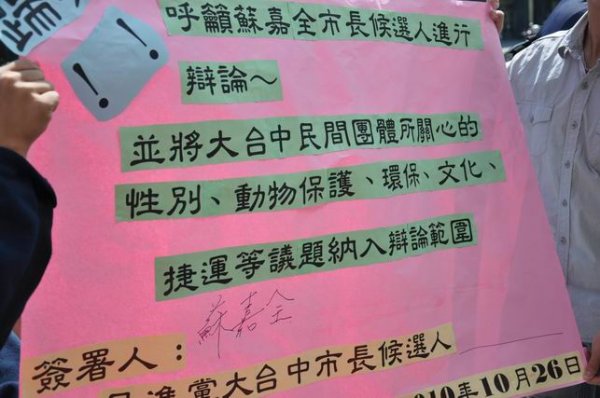 ！！
呼籲蘇嘉全市長候選人進行
辯論～
並將大台中民間團體所關心的
性別、動物保護、環保、文化、
捷運等議題納入辯論範圍
蘇嘉全
簽署人：
民進黨大台中市長候選人
2010年10月26日